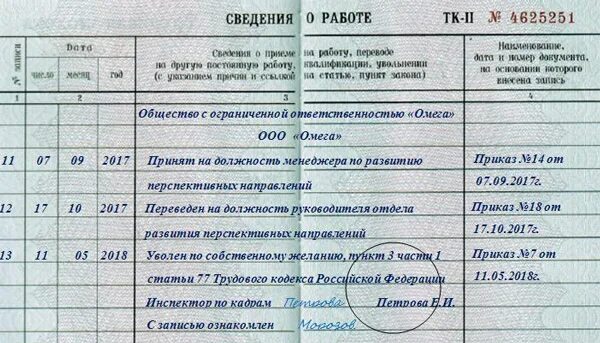 СВЕДЕНИЯ О РАБОТЕ ТК-II № 4625251
№ записи
Дата
число месяц год
Сведения о приеме на работу, переводе
на другую постоянную работу, квалификации, увольнении
(с указанием причин и ссылкой на статью, пункт закона)
Наименование,
дата и номер документа,
на основании которого
внесена запись
1 2 3 4
Общество с ограниченной ответственностью «Омега»
ООО «Омега»
11 07 09 2017 Принят на должность менеджера по развитию Приказ №14 от
перспективных направлений 07.09.2017г.
12 17 10 2017 Переведен на должность руководителя отдела Приказ №18 от
развития перспективных направлений 17.10.2017г.
13 11 05 2018 Уволен по собственному желанию, пункт 3 части 1 Приказ №7 от
статьи 77 Трудового кодекса Российской Федерации 11.05.2018г.
Инспектор по кадрам Петрова Петрова Е.И.
С записью ознакомлен Морозов